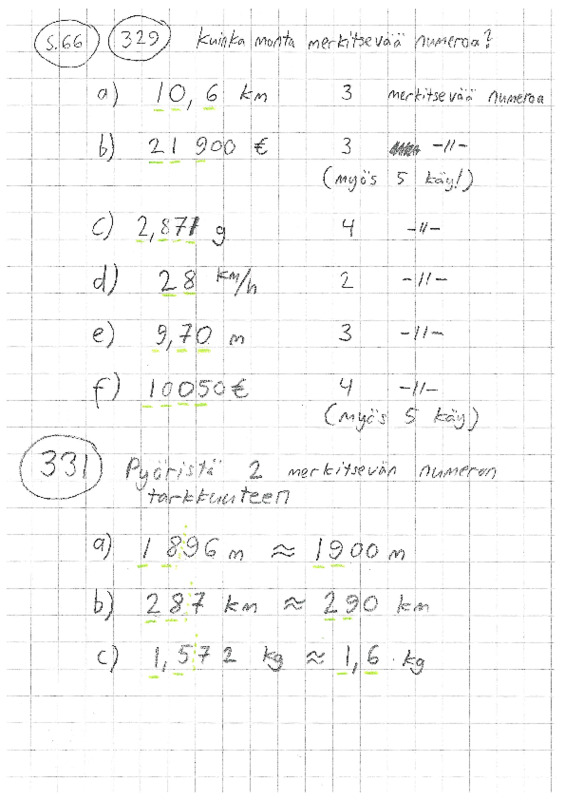 s.66 329 Kuinka monta merkitsevää numeroa?
a) 10,6 km 3 merkitsevää numeroa
b) 21 900 € 3 -//-
(myös 5 käy!)
c) 2,871 g 4 -//-
d) 28 km/h 2 -//-
e) 9,70 m 3 -//-
f) 10050€ 4 -//-
(myös 5 käy)
331 Pyöristä 2 merkitsevän numeron
tarkkuuteen
a) 1896 m ≈ 1900 m
b) 287 km ≈ 290 km
c) 1,572 kg ≈ 1,6 kg